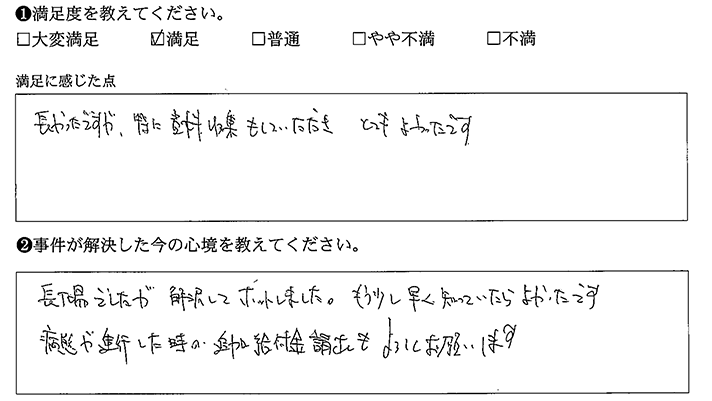 ❶満足度を教えてください。
□大変満足 ☑満足 □普通 □やや不満 □不満
満足に感じた点
長かったですが、特に資料収集もしていただき とてもよかったです
❷事件が解決した今の心境を教えてください。
長丁場でしたが 解決してホットしました。もう少し早く知っていたらよかったです
病態が進行した時の追加給付金請求もよろしくお願いします